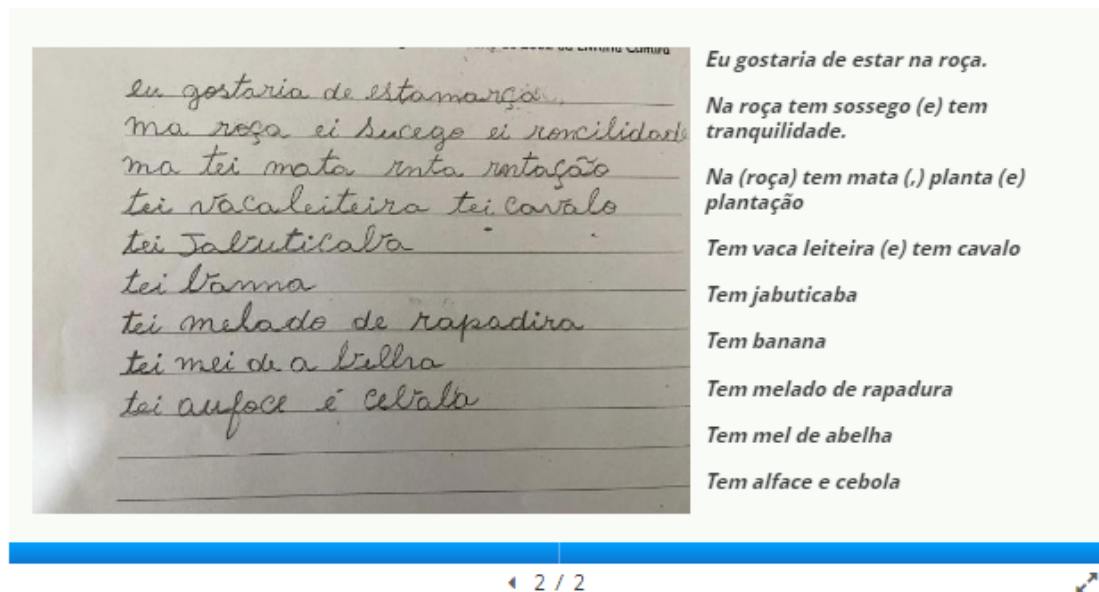 eu gostaria de estamarça
ma roça ei sucego ei roncilidade
ma tei mata rnta rntação
tei vacaleiteira tei cavalo
tei Jabuticaba
tei banna
tei melado de rapadira
tei mei de a belha
tei aufoce é cebala
Eu gostaria de estar na roça.
Na roça tem sossego (e) tem
tranquilidade.
Na (roça) tem mata (,) planta (e)
plantação
Tem vaca leiteira (e) tem cavalo
Tem jabuticaba
Tem banana
Tem melado de rapadura
Tem mel de abelha
Tem alface e cebola
2 / 2